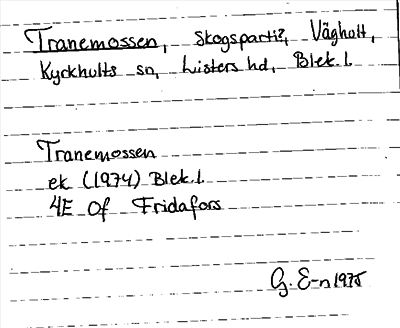 Tranemossen, skogsparti?, Vägholt,
Kyrkhults sn, Listers hd, Blek. l.
Tranemossen
ek (1974) Blek. l.
4E 0f Fridafors
G. E-n 1975